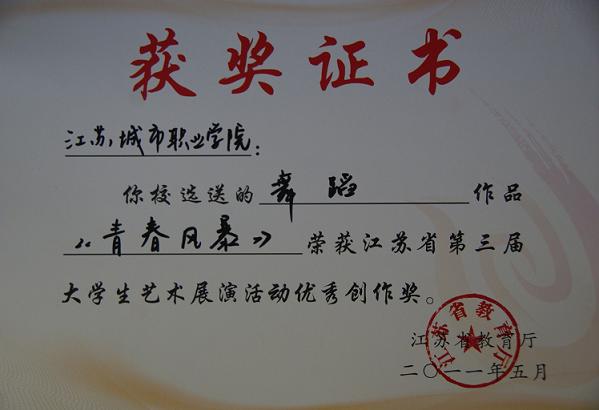 获奖证书
江苏城市职业学院：
你校选送的 舞蹈 作品
《青春风暴》荣获江苏省第三届
大学生艺术展演活动优秀创作奖。
江苏省教育厅
二〇一一年五月
江苏省教育厅